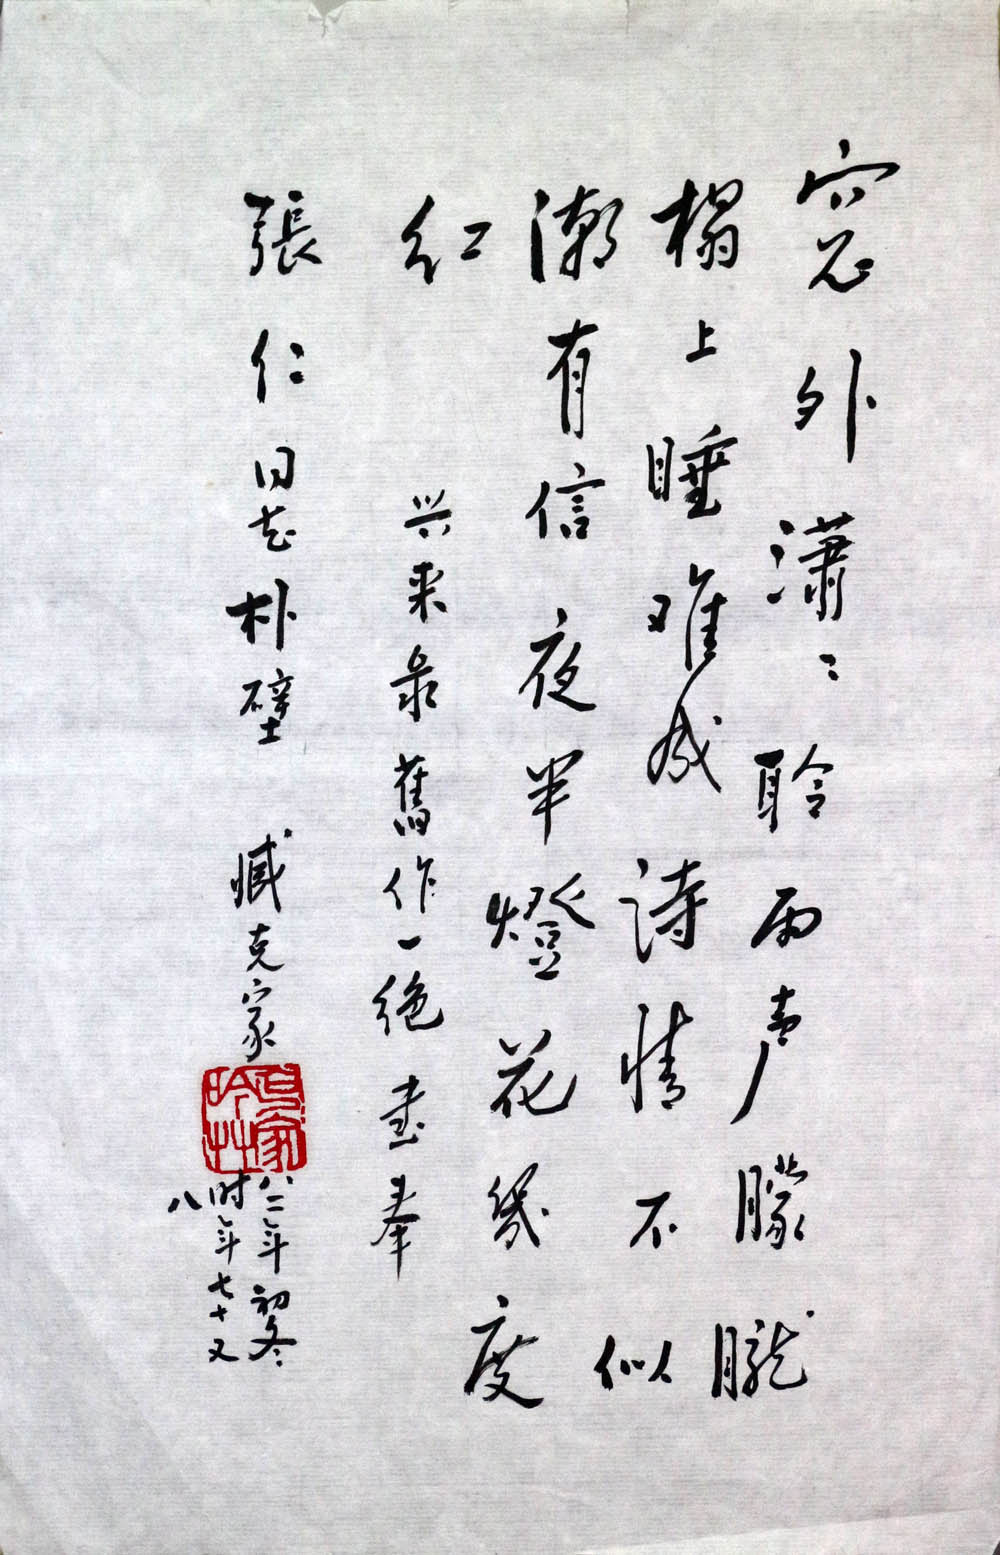 窓外瀟〻聆雨声朦朧
榻上睡难成诗情不似
潮有信夜半燈花幾度
红
兴来录舊作一绝书奉
張仁同志朴壁 臧克家
八二年初冬
时年七十又
八